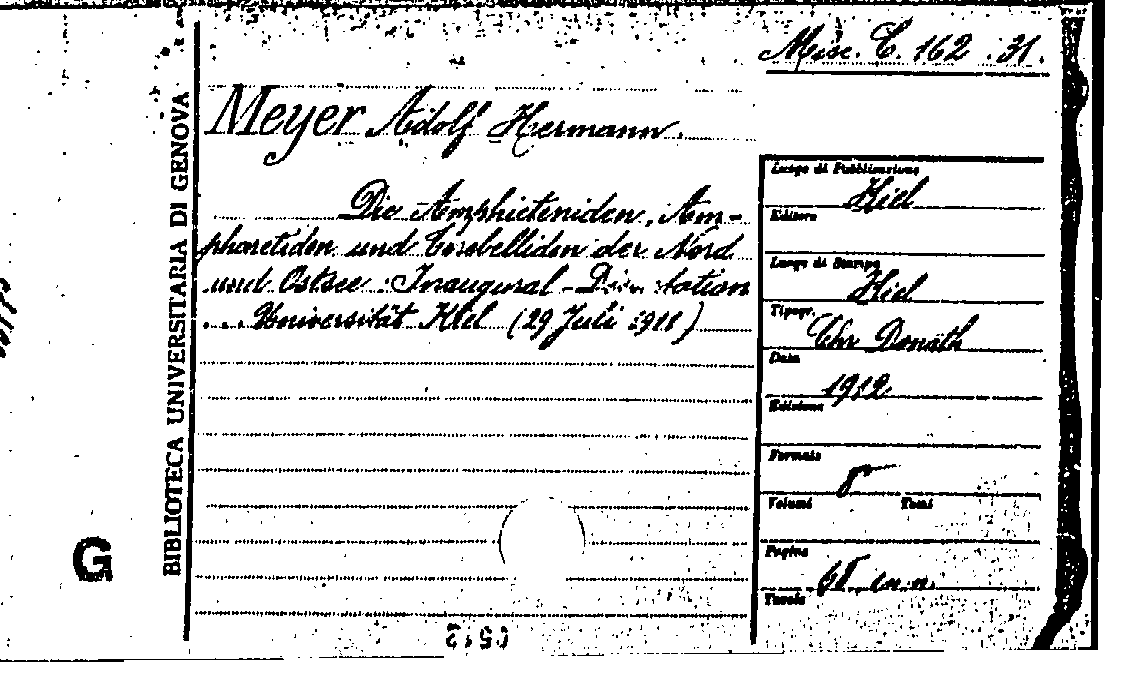 Misc. C. 162 . 31.
Meyer Adolf Hermann.
Die Amphicteniden, Am-
pharetiden und Terebelliden der Nord
und Ostsee : Inaugural-Dissertation
... Universität Kiel (29 Juli 1911)
Luogo di Pubblicazione
Kiel
Editore
Luogo di Stampa
Kiel
Tipogr.
Chr Donath
Data
1912
Edizione
Formato
8°
Volumi Tomi
Pagine
Tavole
BIBLIOTECA UNIVERSITARIA DI GENOVA
G